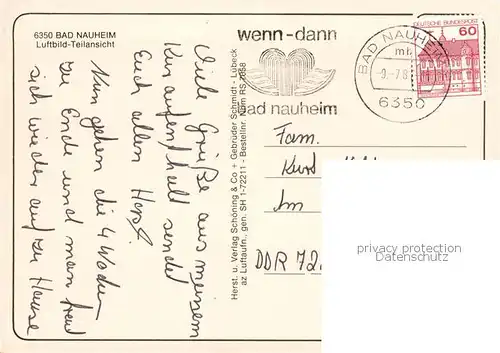 6350 BAD NAUHEIM
Luftbild-Teilansicht
wenn-dann
bad nauheim
BAD NAUHEIM
mi
9.-7.8
6350
DEUTSCHE BUNDESPOST
60
Viele Grüße aus meinem
Kuraufenthalt sendet
Euch allen Horst.
Nun gehen die 4 Wochen
zu Ende und man freut
sich wieder auf zu Hause
Herst. u. Verlag Schöning & Co + Gebrüder Schmidt - Lübeck
az Luftaufn., gen. SH 1-72211 - Bestellnr.
Fam.
Kurt
Im
DDR 72
privacy protection
Datenschutz